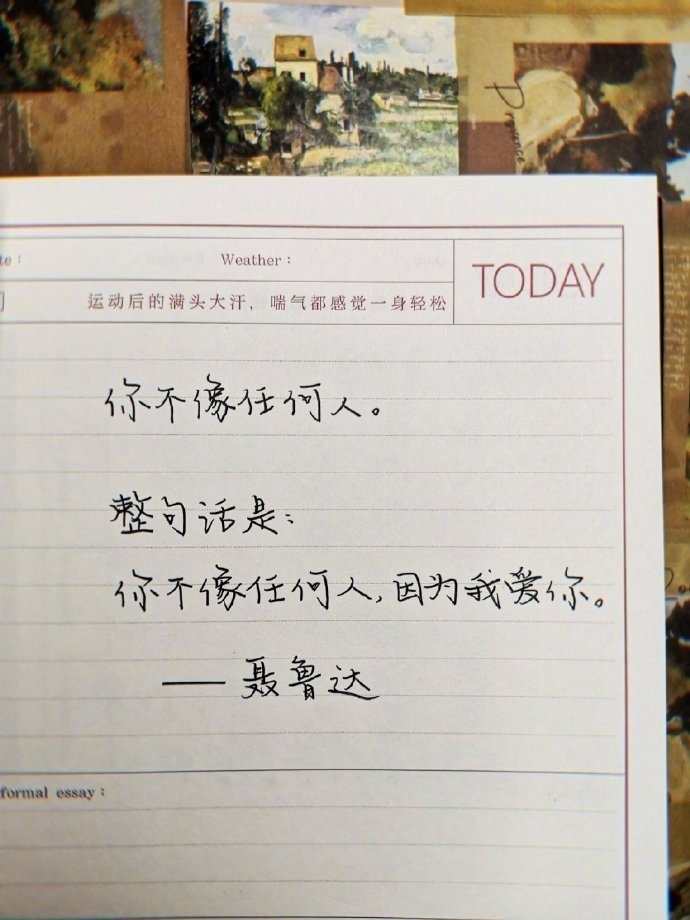 Provence
Weather：
TODAY
运动后的满头大汗，喘气都感觉一身轻松
你不像任何人。
整句话是：
你不像任何人，因为我爱你。
——聂鲁达
formal essay：